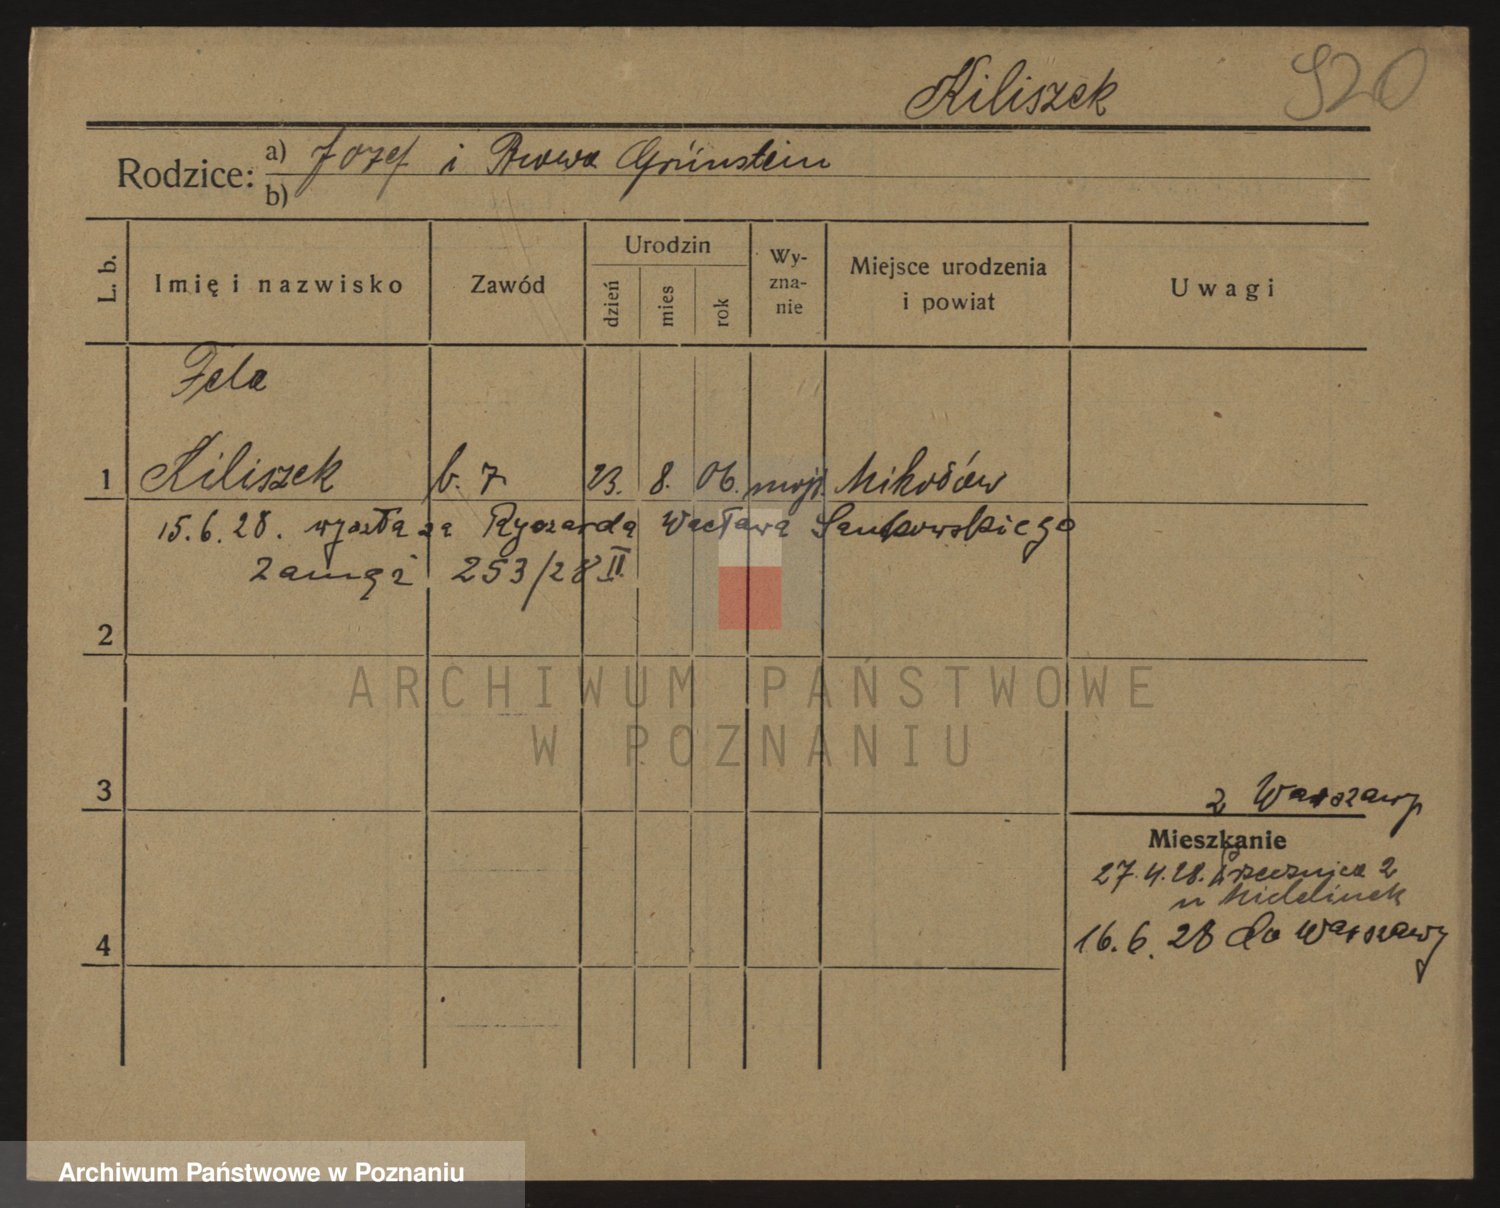 Kiliszek 920
Rodzice: a) Józef i Brewa Grünstein
b)
L. b. Imię i nazwisko Zawód Urodzin dzień mies rok Wy-zna-nie Miejsce urodzenia i powiat Uwagi
Fela
1 Kiliszek b. z 23. 8. 06. mojż. Mikołów
15.6.28. wyszła za Ryszarda Wacława Sankowskiego
zamąż 253/28 II
2
ARCHIWUM PAŃSTWOWE
W POZNANIU
3
z Warszawy
Mieszkanie
27.4.28. 2
u
4
16.6.28 do Warszawy
Archiwum Państwowe w Poznaniu